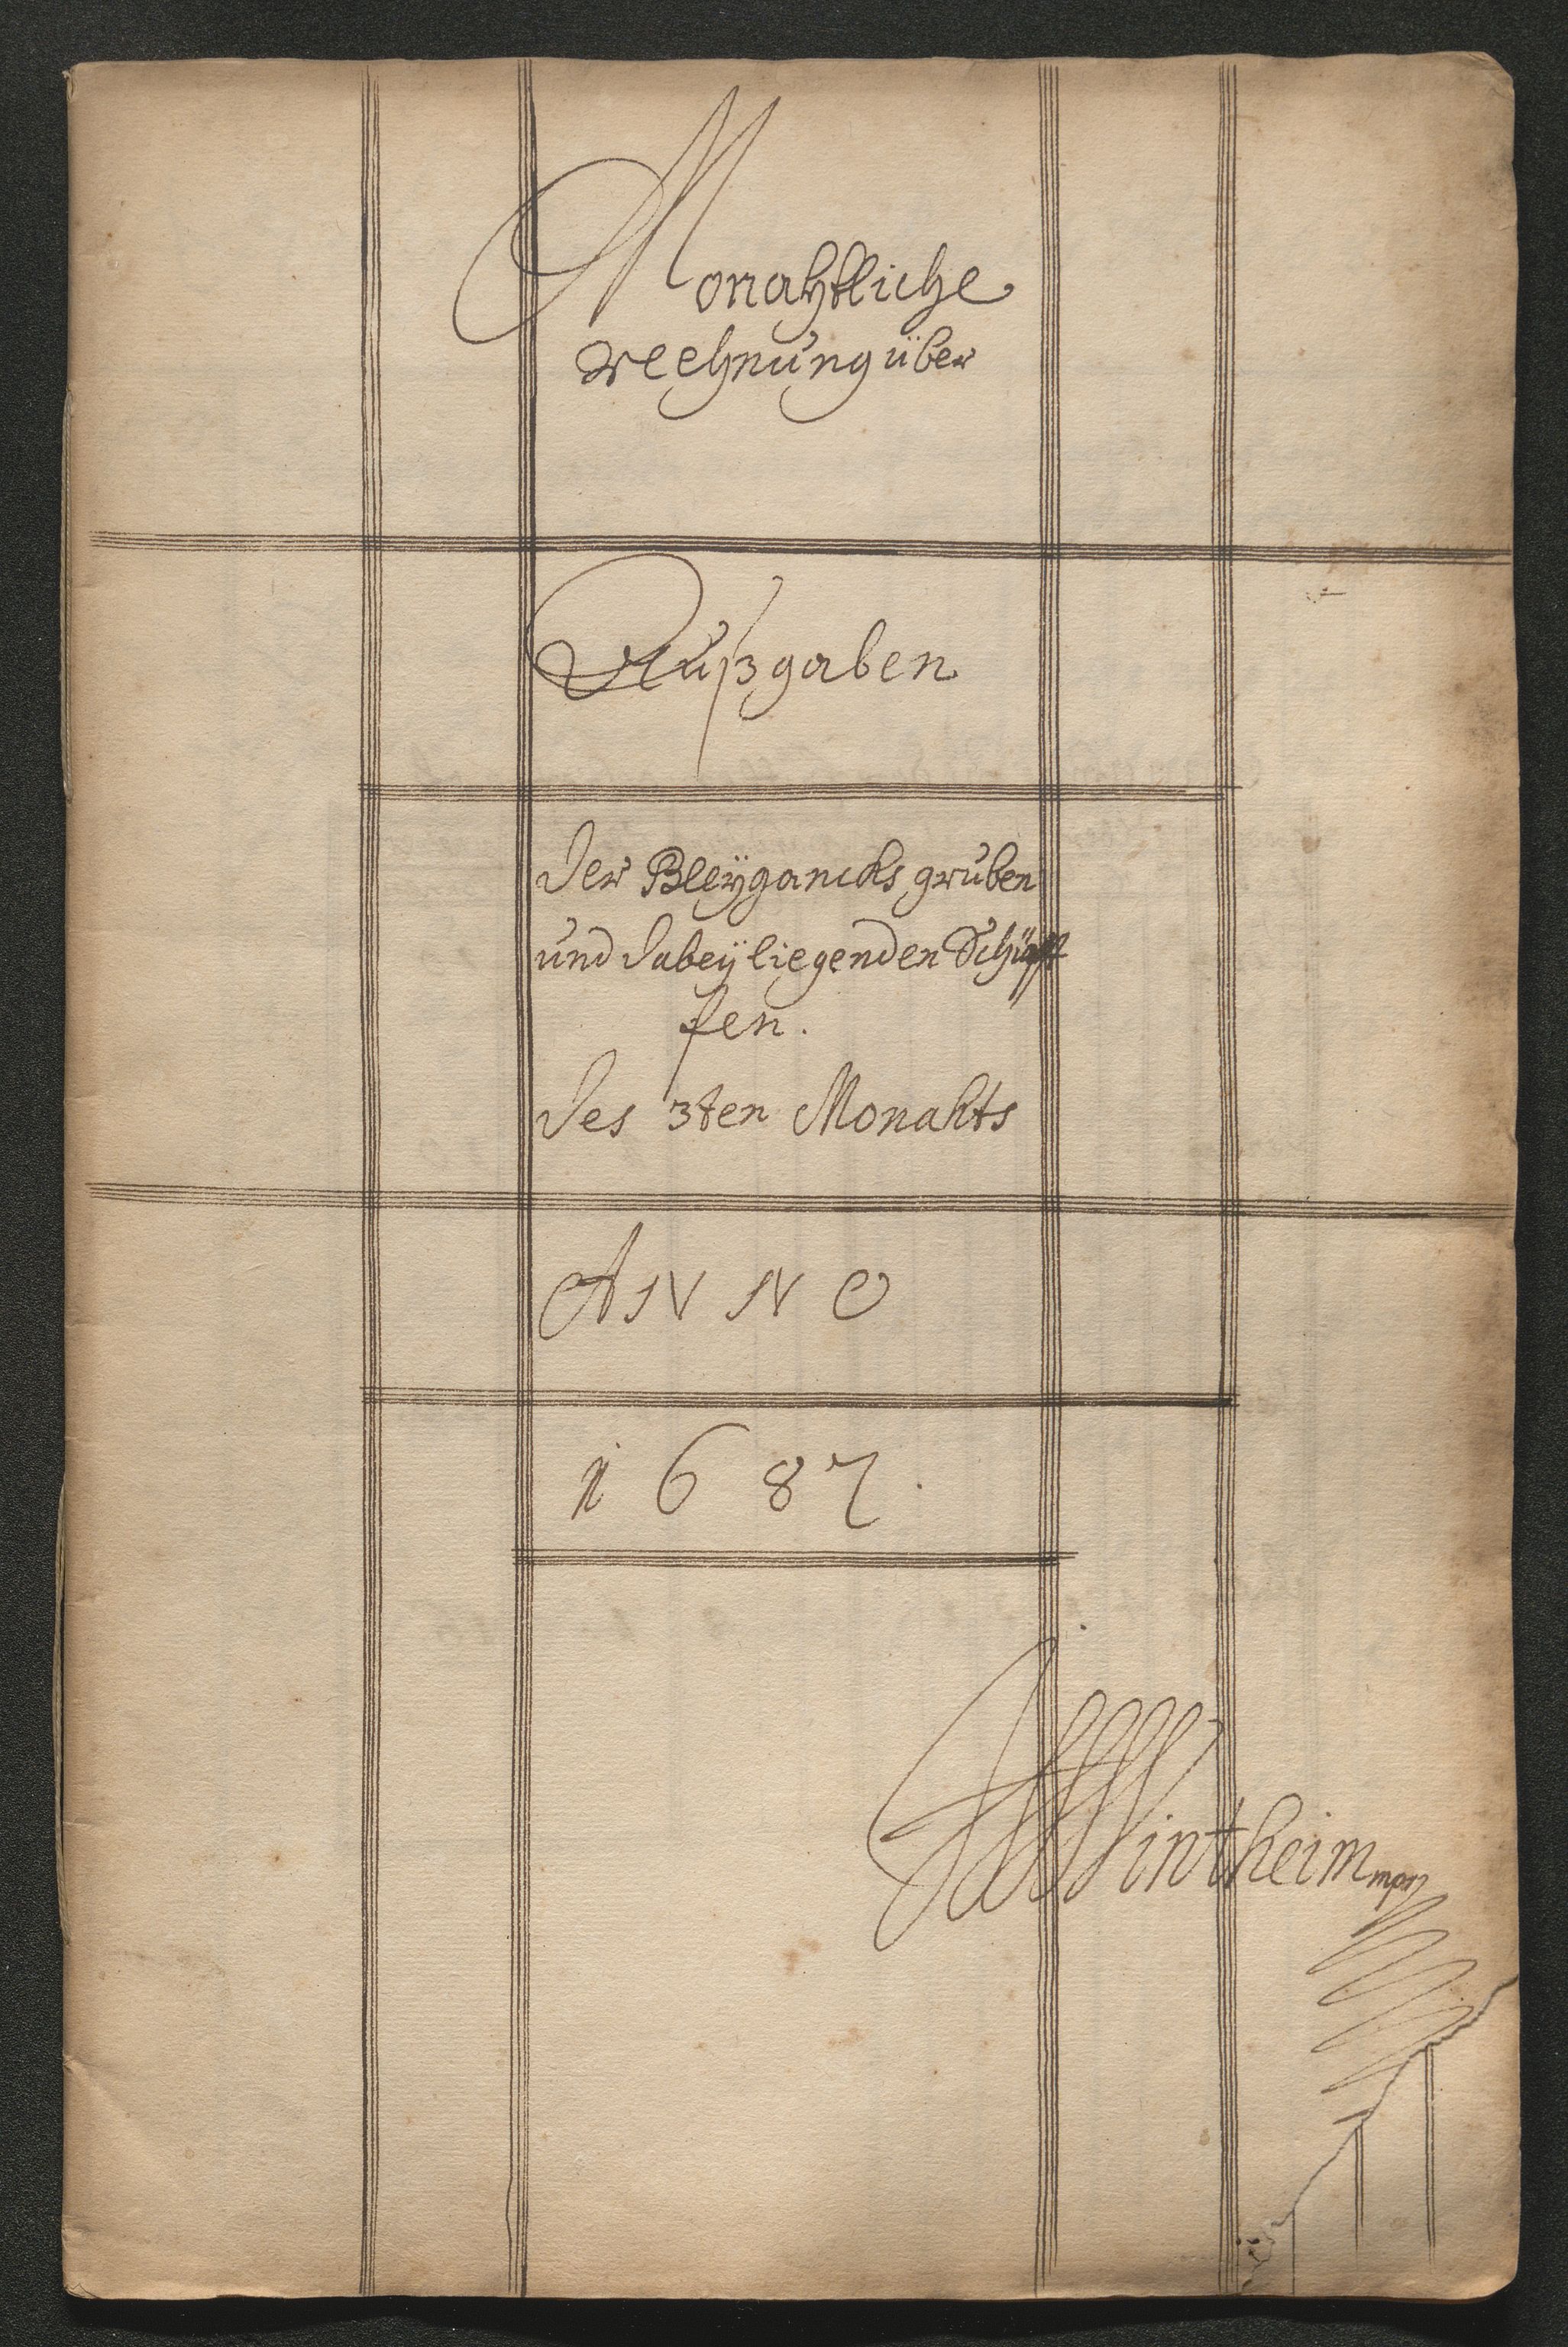 Monahtliche
Rechnung über
Außgaben
der Bleÿgancks gruben
und dabeÿ liegenden Schürff
fen.
des 3ten Monahts
ANNO
1687.
Wintheim mpr